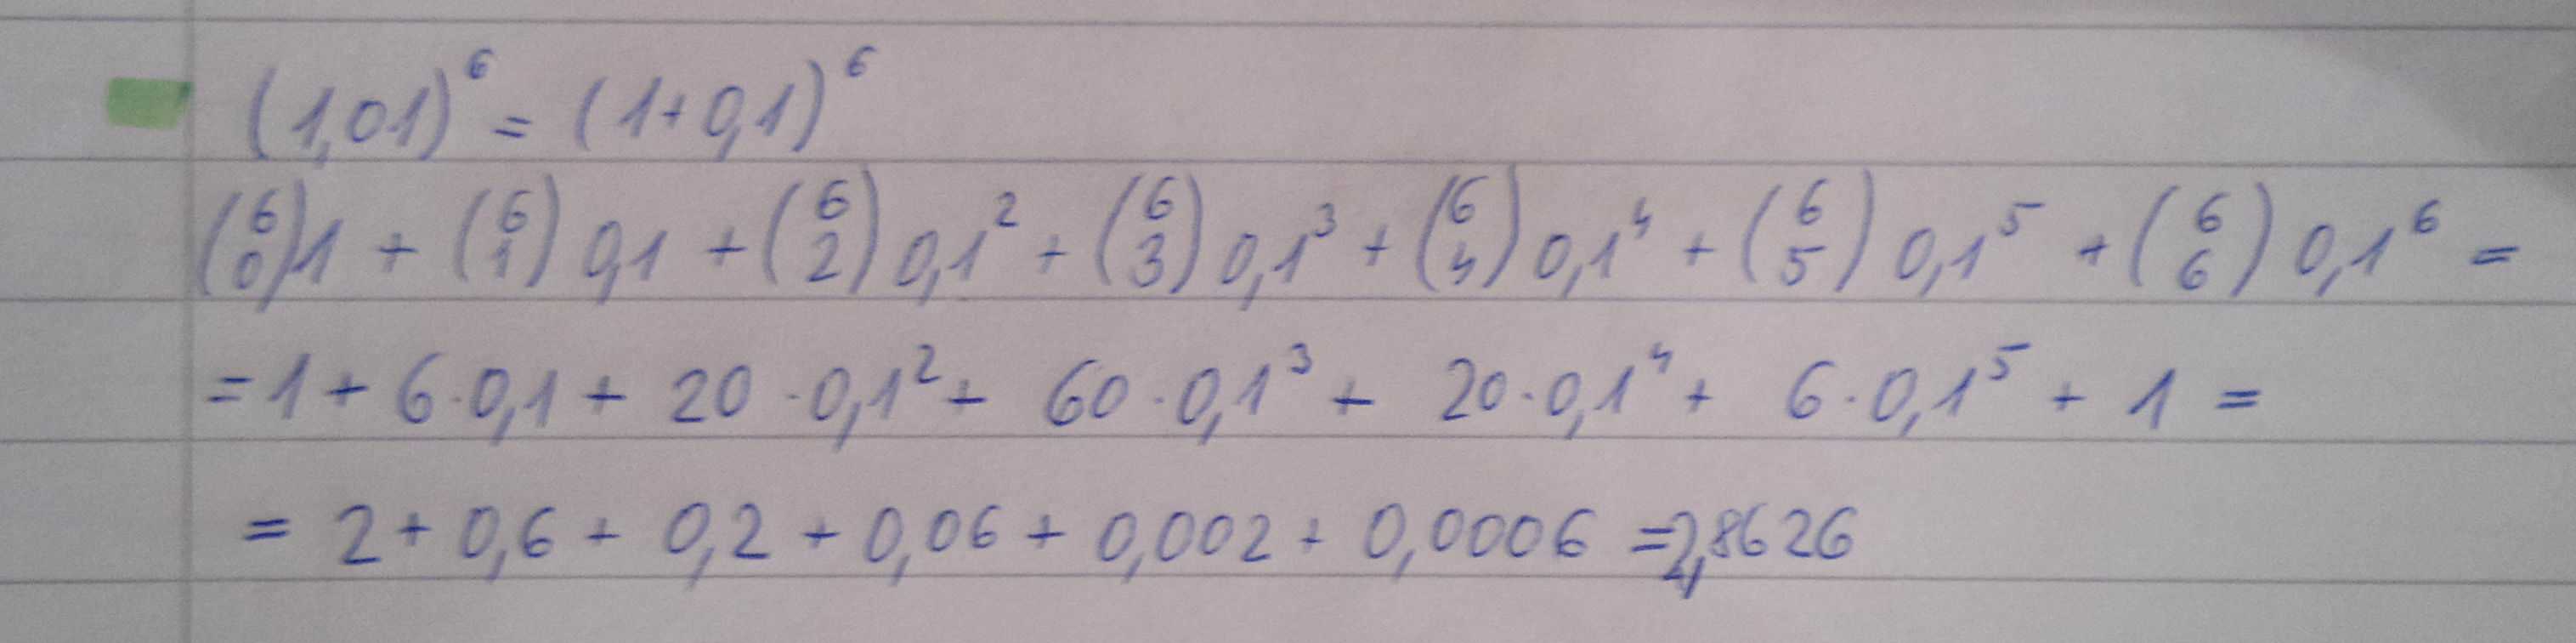 (1,01)⁶ = (1+0,1)⁶
(6 0)1 + (6 1) 0,1 + (6 2) 0,1² + (6 3) 0,1³ + (6 4) 0,1⁴ + (6 5) 0,1⁵ + (6 6) 0,1⁶ =
= 1 + 6·0,1 + 20·0,1² + 60·0,1³ + 20·0,1⁴ + 6·0,1⁵ + 1 =
= 2 + 0,6 + 0,2 + 0,06 + 0,002 + 0,0006 = 2,8626